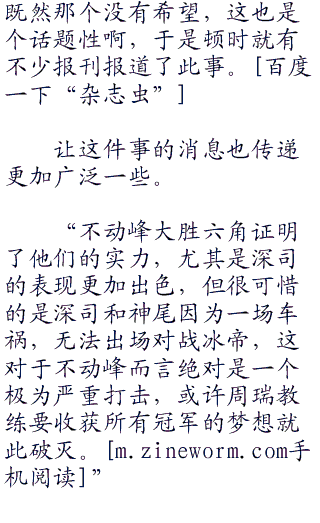 既然那个没有希望，这也是
个话题性啊，于是顿时就有
不少报刊报道了此事。[百度
一下“杂志虫”]
让这件事的消息也传递
更加广泛一些。
“不动峰大胜六角证明
了他们的实力，尤其是深司
的表现更加出色，但很可惜
的是深司和神尾因为一场车
祸，无法出场对战冰帝，这
对于不动峰而言绝对是一个
极为严重打击，或许周瑞教
练要收获所有冠军的梦想就
此破灭。[m.zineworm.com手
机阅读]”